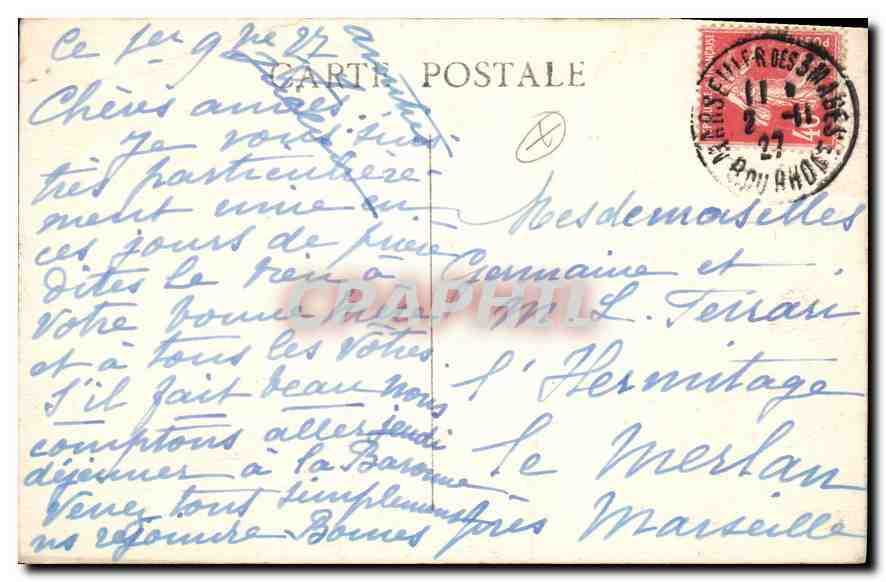 Ce 1er 9bre 27
CARTE POSTALE
Chères amies
Je vous suis
très particulière-
ment unie en
ces jours de prière
dites le bien à
votre bonne mère
et à tous les vôtres
S'il fait beau nous
comptons aller jeudi
déjeuner à la Baronne
Venez tous simplement
ns rejoindre Bonnes
amitiés
Mesdemoiselles
Germaine et
M. L. Ferrari
l'Hermitage
le Merlan
près Marseille
MARSEILLE R DES 3 MAGES
11
2 -11
27
B DU RHONE
40
CPAPHIL